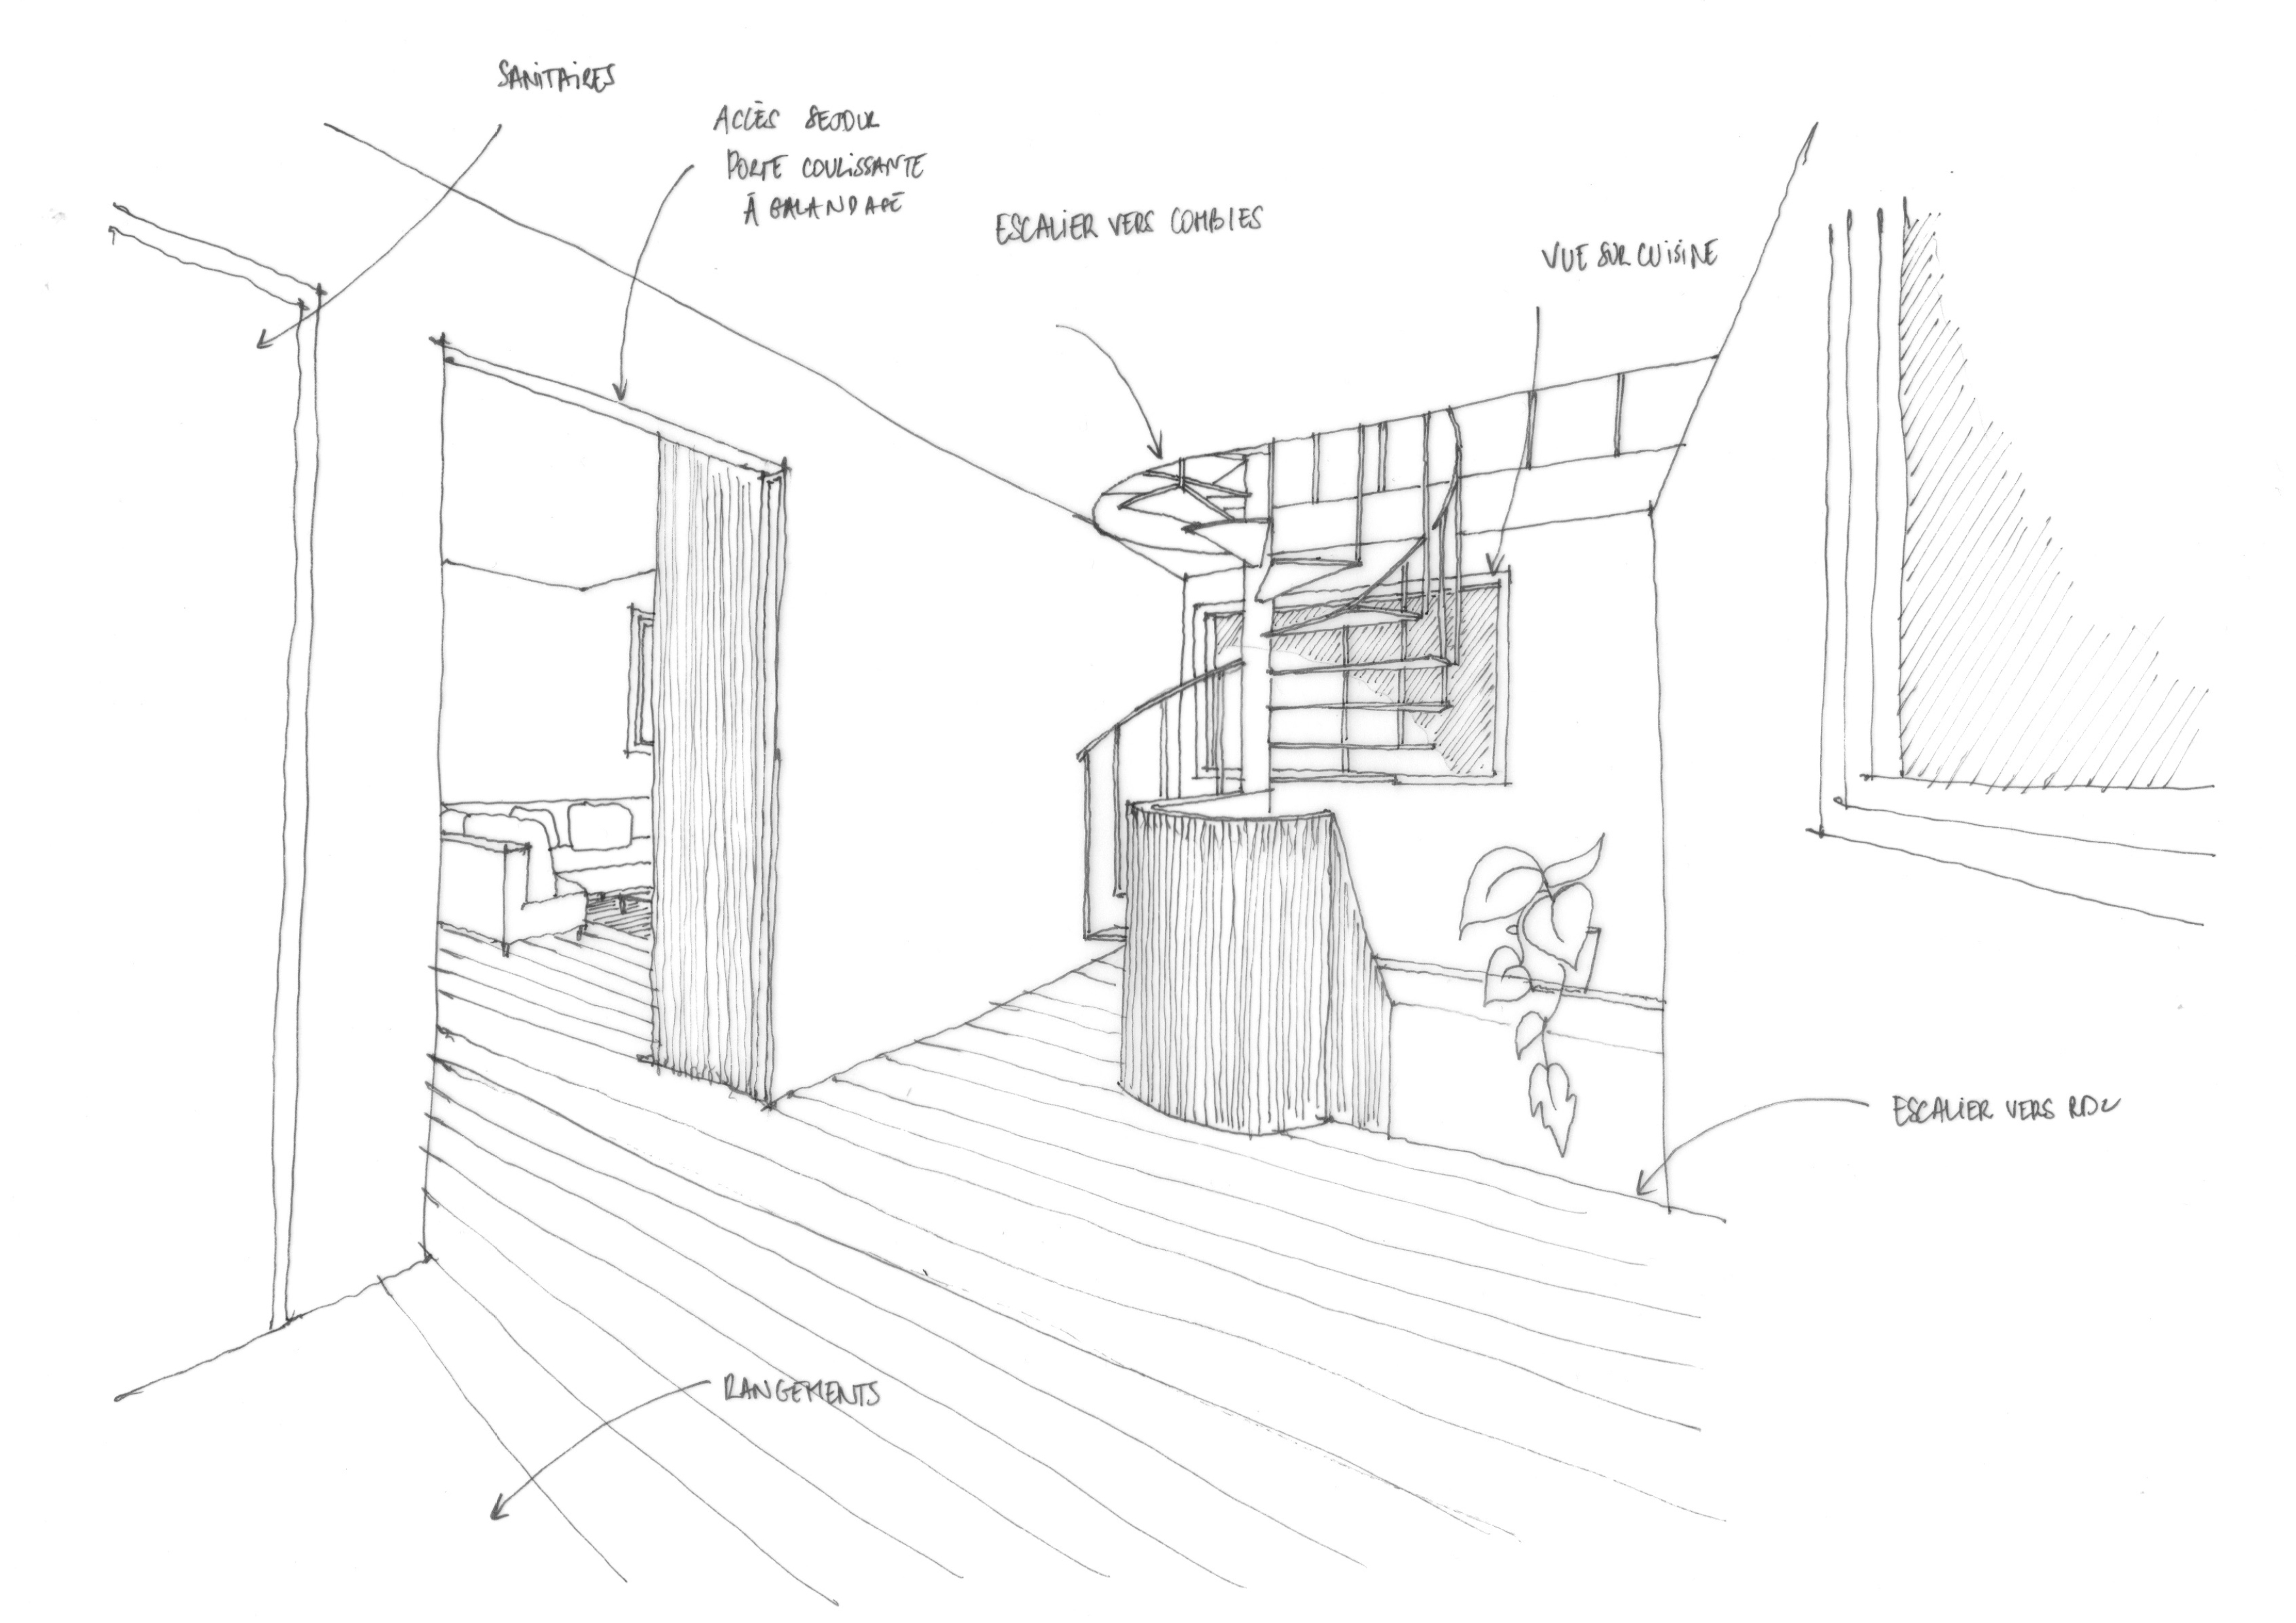 SANITAIRES
ACCÈS SEJOUR
PORTE COULISSANTE
À GALANDAGE
ESCALIER VERS COMBLES
VUE SUR CUISINE
ESCALIER VERS RDC
RANGEMENTS